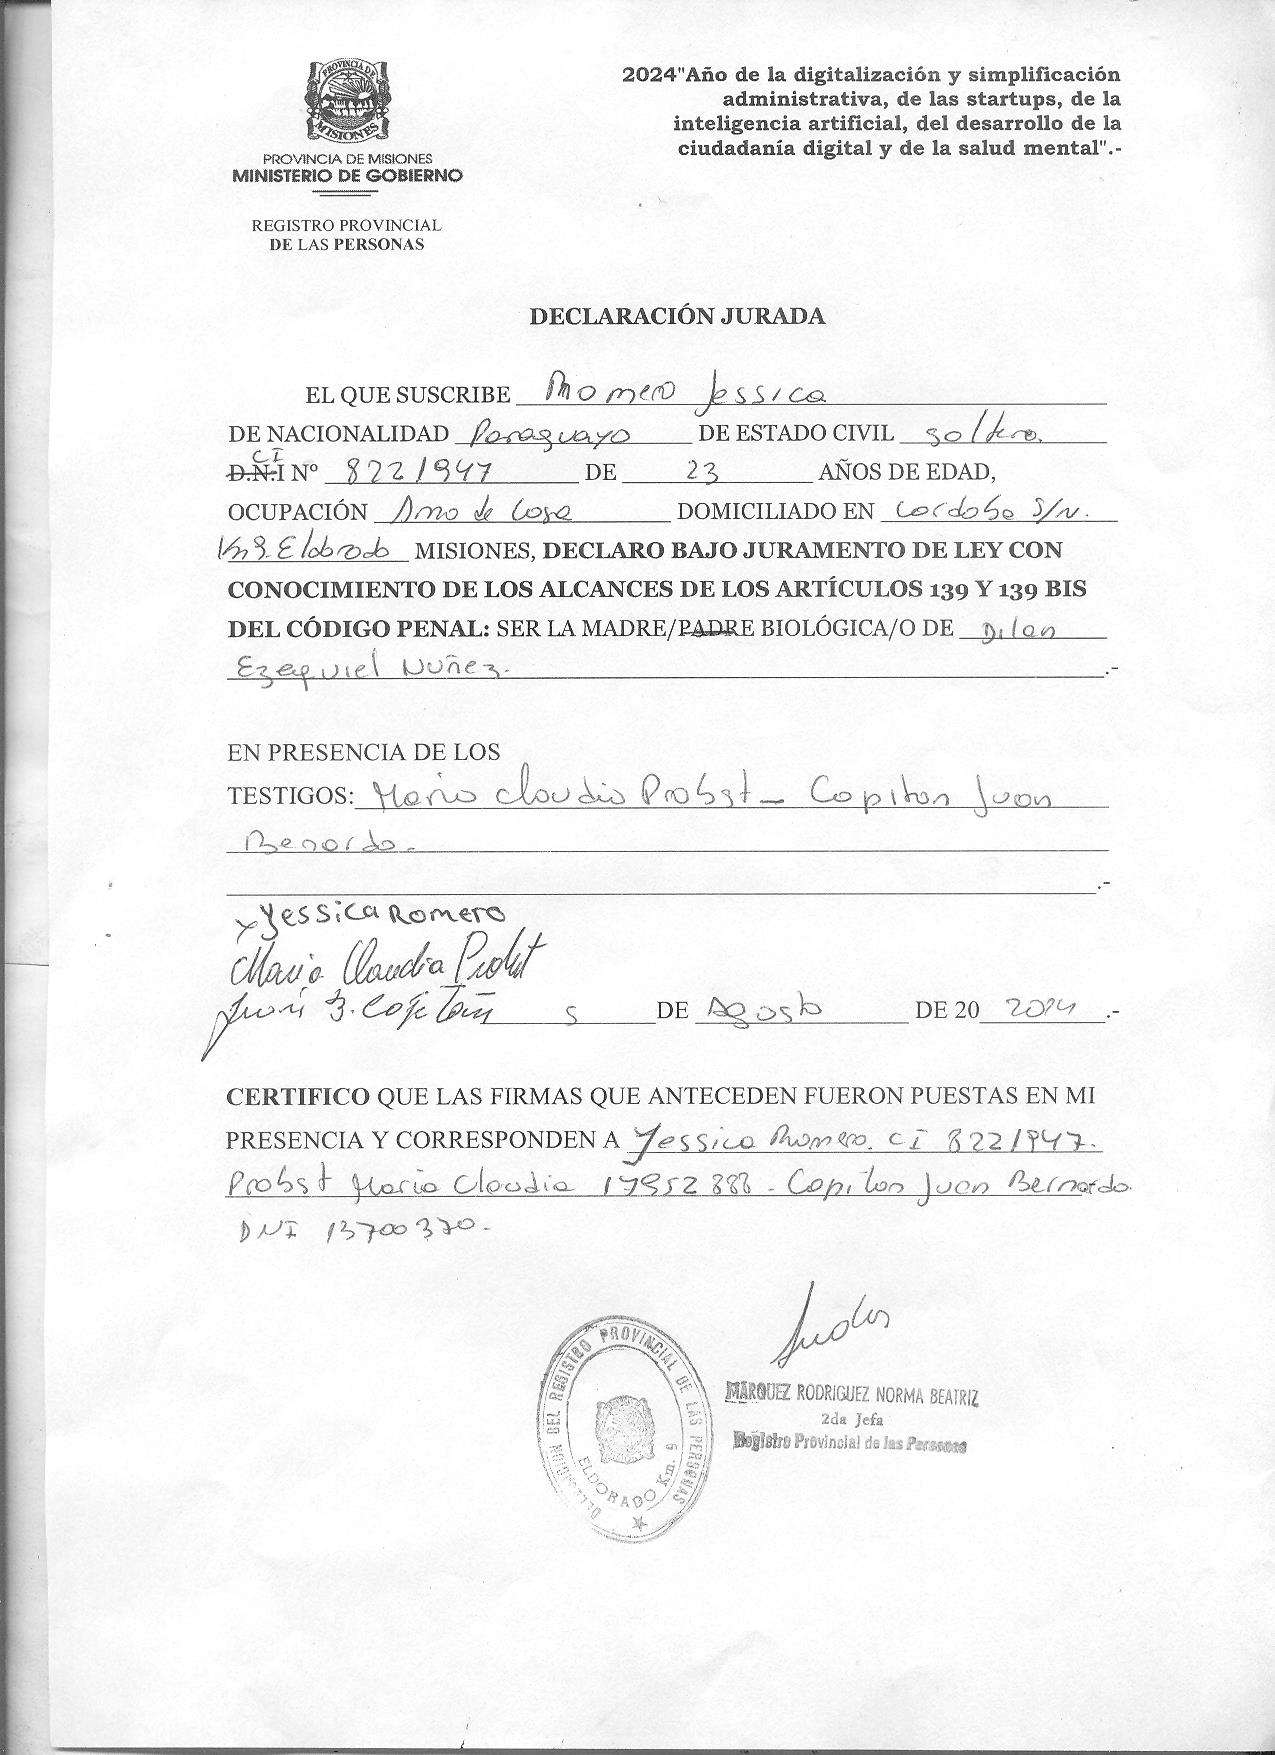 PROVINCIA DE
MISIONES
PROVINCIA DE MISIONES
MINISTERIO DE GOBIERNO
REGISTRO PROVINCIAL
DE LAS PERSONAS
2024"Año de la digitalización y simplificación
administrativa, de las startups, de la
inteligencia artificial, del desarrollo de la
ciudadanía digital y de la salud mental".-
DECLARACIÓN JURADA
EL QUE SUSCRIBE Romero Jessica
DE NACIONALIDAD Paraguaya DE ESTADO CIVIL soltera.
CI
D.N.I Nº 8221947 DE 23 AÑOS DE EDAD,
OCUPACIÓN Ama de Casa DOMICILIADO EN Cordoba S/N.
Km 9. Eldorado MISIONES, DECLARO BAJO JURAMENTO DE LEY CON
CONOCIMIENTO DE LOS ALCANCES DE LOS ARTÍCULOS 139 Y 139 BIS
DEL CÓDIGO PENAL: SER LA MADRE/PADRE BIOLÓGICA/O DE Dilan
Ezequiel Nuñez. .-
EN PRESENCIA DE LOS
TESTIGOS: Maria Claudia Probst - Capitan Juan
Benardo.
.-
x Yessica Romero
Maria Claudia Probst
Juan B. Capitan 5 DE Agosto DE 20 2024 .-
CERTIFICO QUE LAS FIRMAS QUE ANTECEDEN FUERON PUESTAS EN MI
PRESENCIA Y CORRESPONDEN A Yessica Romero. CI 8221947.
Probst Maria Claudia 17952888 - Capitan Juan Bernardo.
DNI 13700370.
DELEGACION DEL REGISTRO PROVINCIAL DE LAS PERSONAS
ELDORADO Km. 9
MARQUEZ RODRIGUEZ NORMA BEATRIZ
2da Jefa
Registro Provincial de las Personas